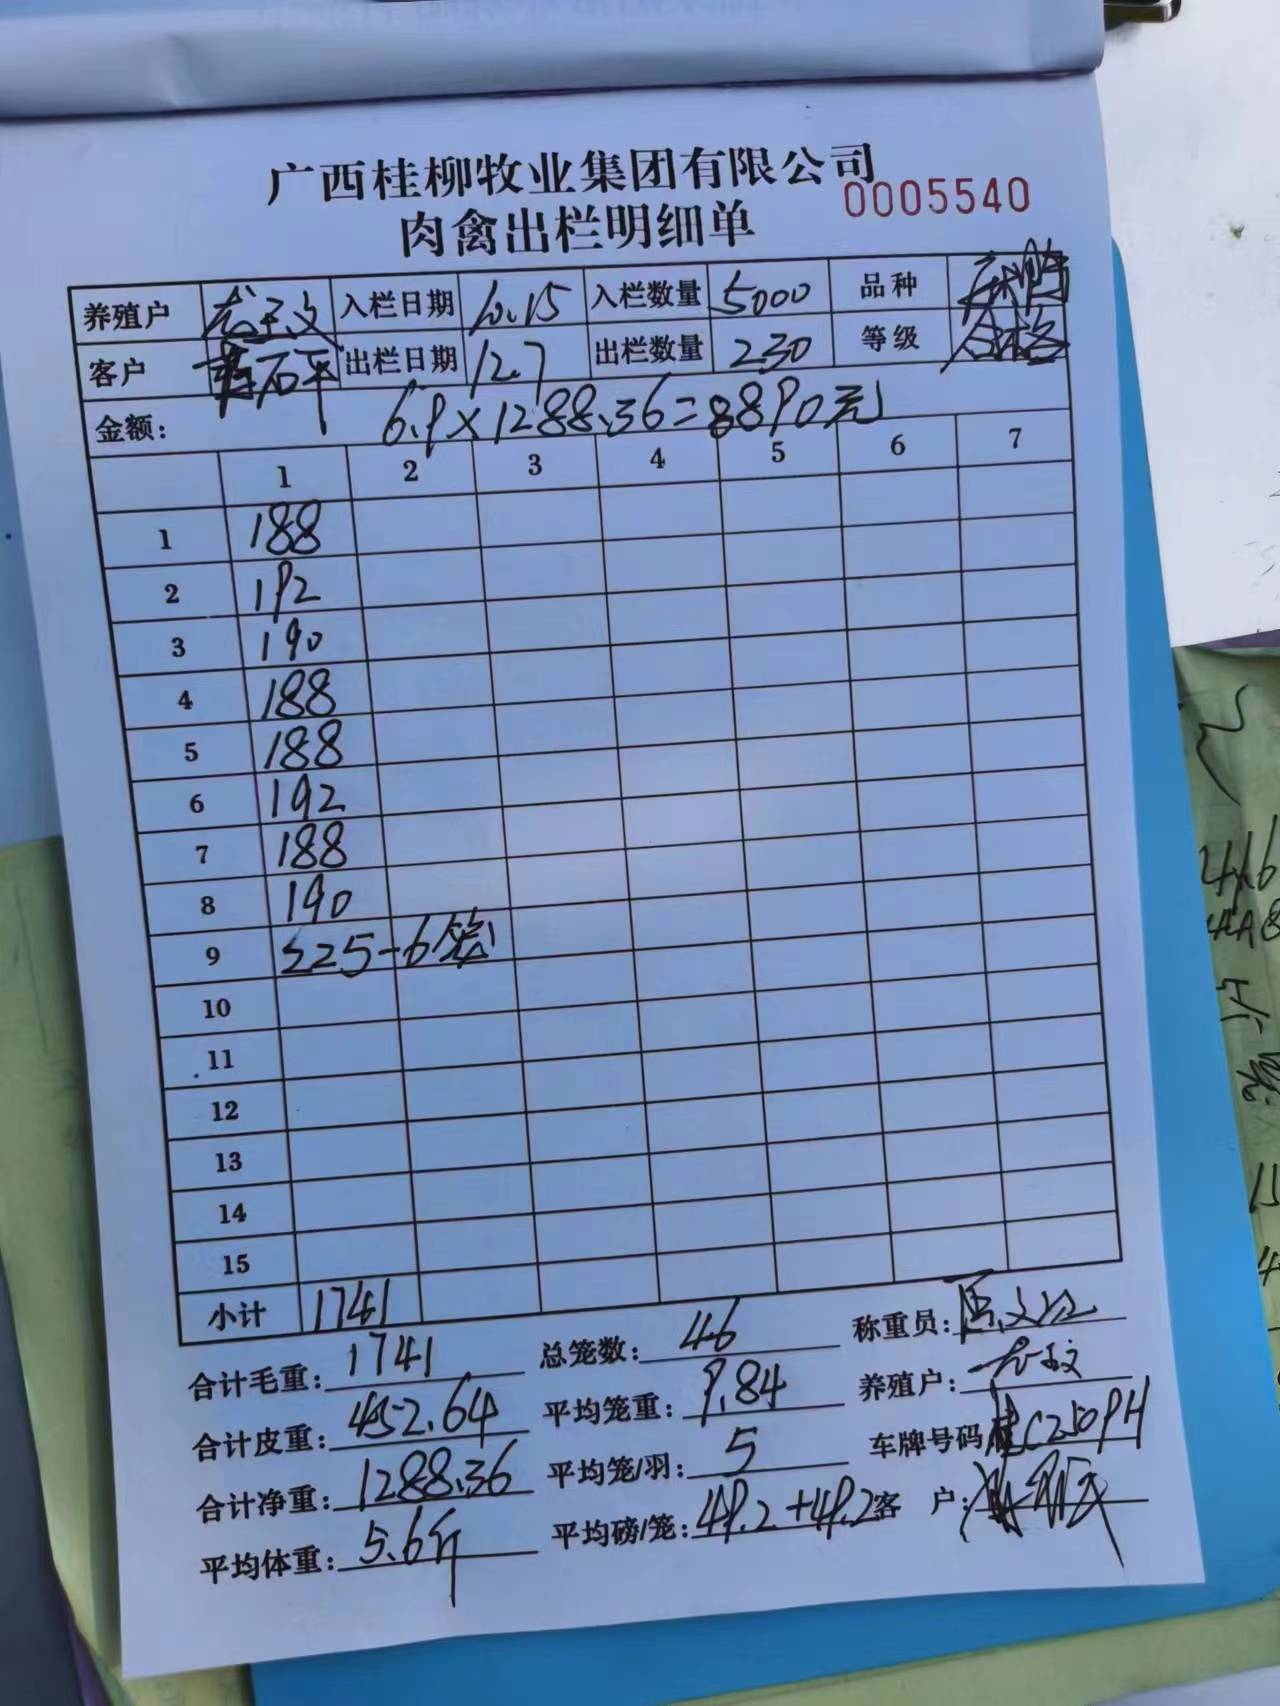 广西桂柳牧业集团有限公司
0005540
肉禽出栏明细单
养殖户 入栏日期 10.15 入栏数量 5000 品种
客户 石平 出栏日期 12.7 出栏数量 230 等级 合格
金额: 6.9×1288.36=8890元
1 2 3 4 5 6 7
1 188
2 192
3 190
4 188
5 188
6 192
7 188
8 190
9 225-6笼
10
11
12
13
14
15
小计 1741
合计毛重: 1741 总笼数: 46 称重员:
合计皮重: 452.64 平均笼重: 9.84 养殖户:
合计净重: 1288.36 平均笼/羽: 5 车牌号码 桂C250PH
平均体重: 5.6斤 平均磅/笼: 49.2+49.2 客户: